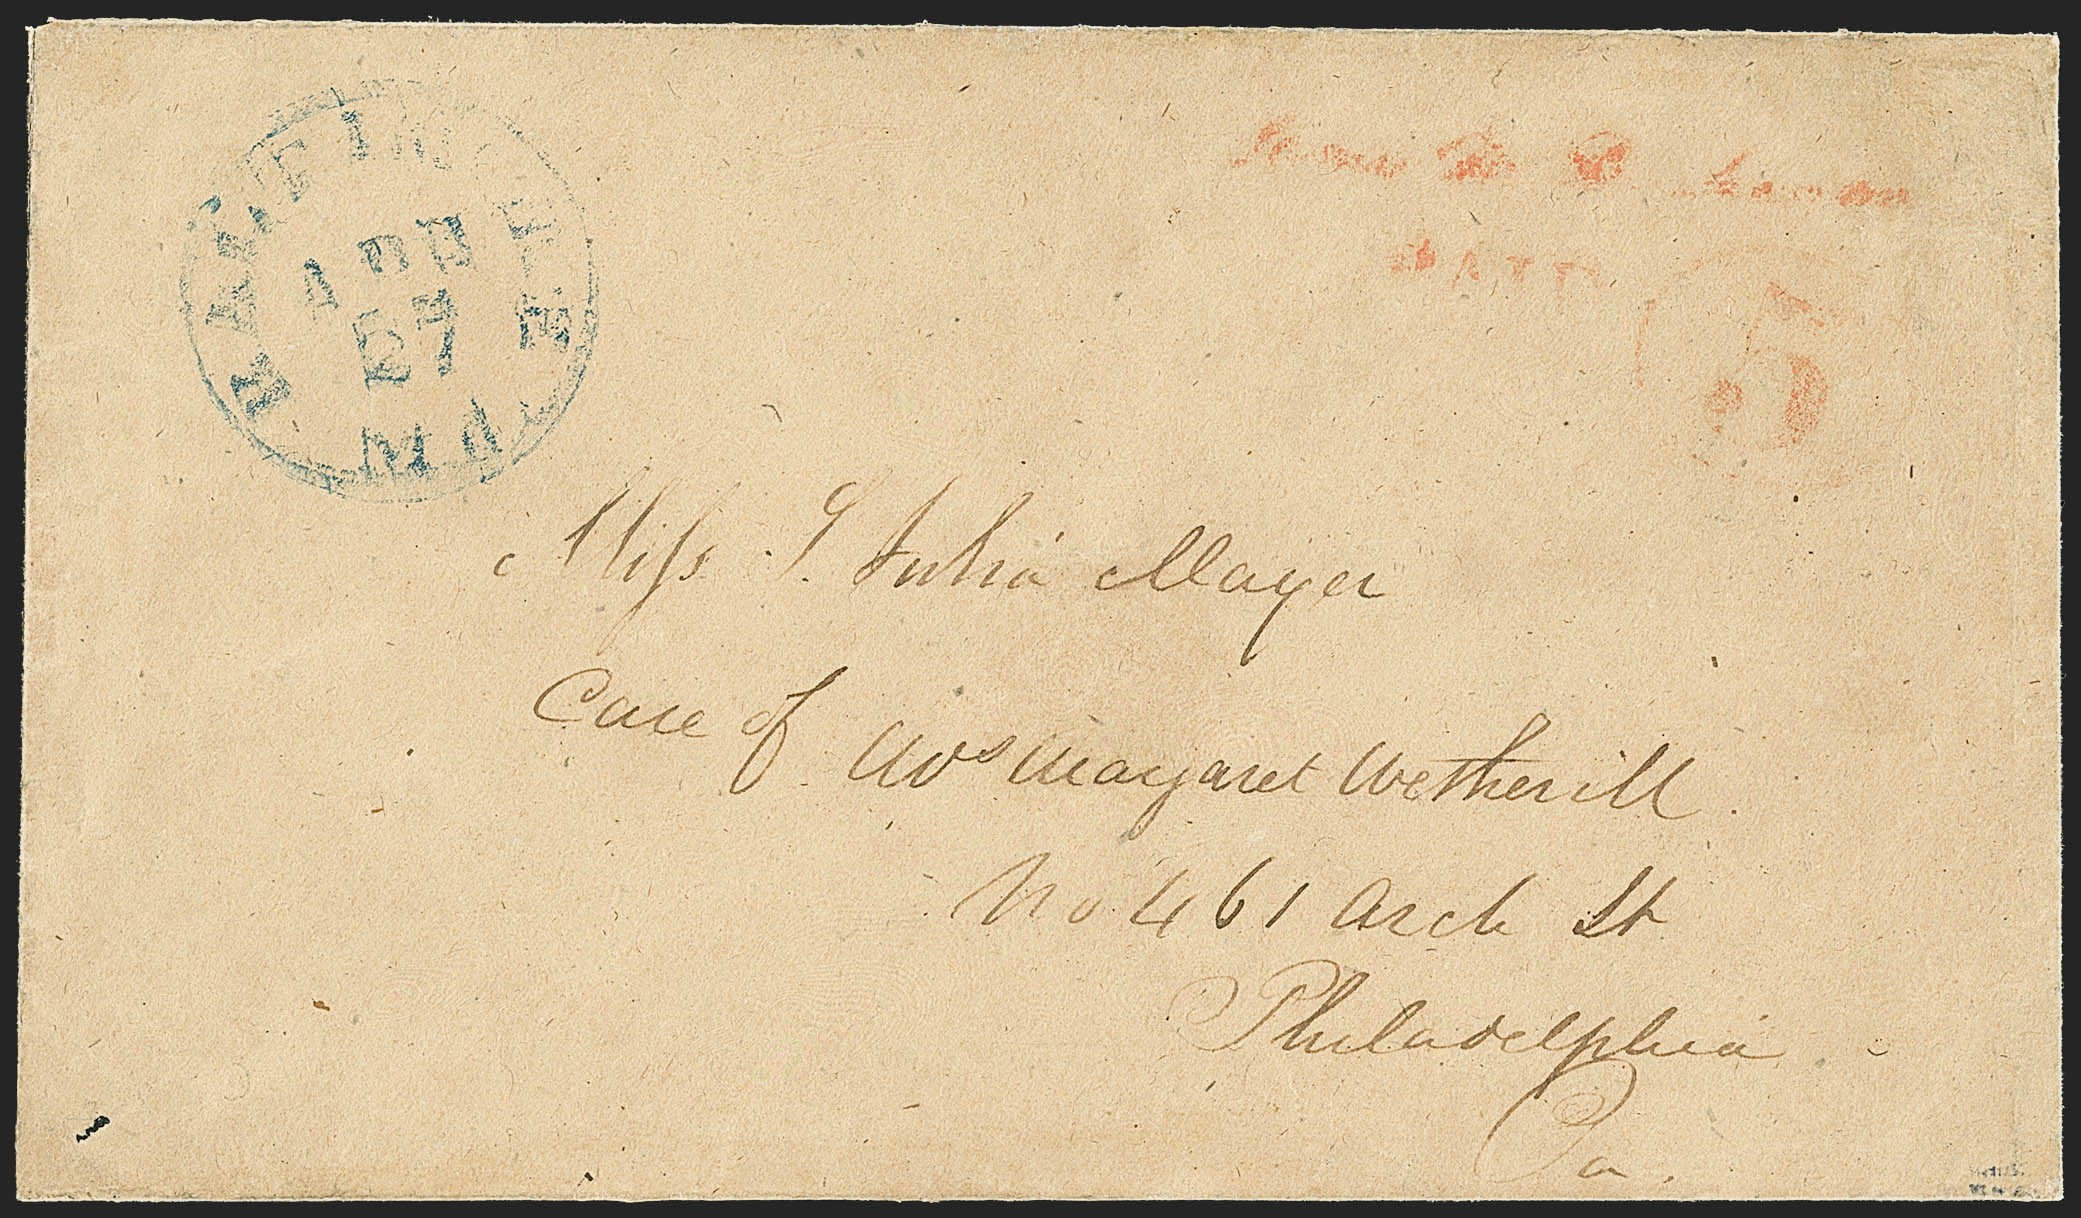 BALTIMORE
Md.
APR
27
James M. Buchanan
PAID
5
Miss S. Julia Mayer
Care of Mrs Margaret Wetherill
No 461 Arch St
Philadelphia
Pa.